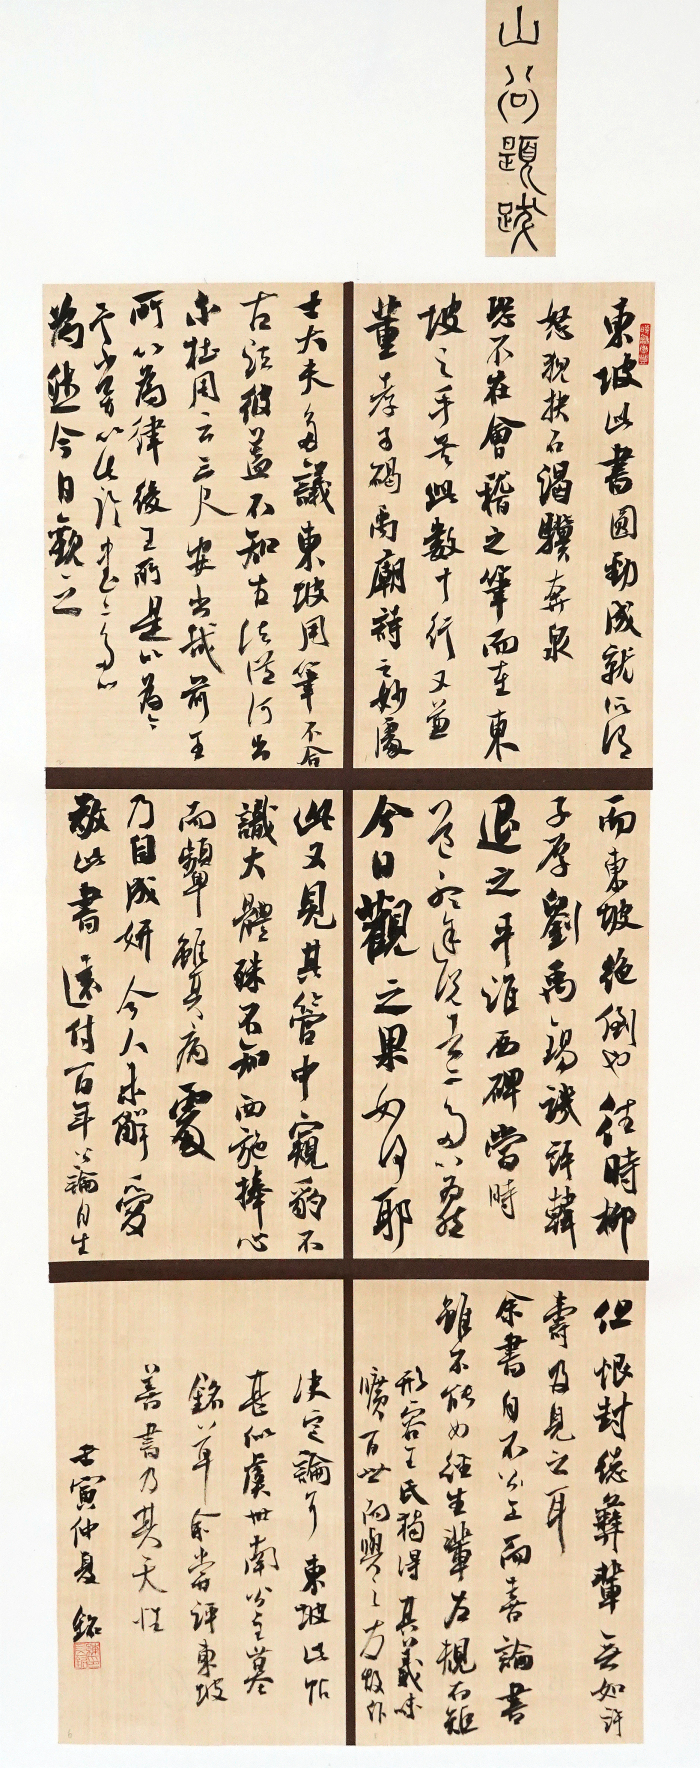 山谷題跋
東坡此書圓勁成就所謂
怒猊抉石渴驥奔泉
恐不在會稽之筆而在東
坡之手矣此數十行又兼
董孝子碣禹廟詩之妙處
士大夫多議東坡用筆不合
古法彼蓋不知古法從何出
尔杜用云三尺安出哉前王
所以為律後王所是以為令
予嘗以此論書亦多以
為然今日觀之
而東坡絕倒也往時柳
子厚劉禹錫譏評韓
退之平淮西碑當時
道聽途說者亦多以為然
今日觀之果如何耶
此又見其管中窺豹不
識大體殊不知西施捧心
而顰雖其病處
乃自成妍今人未解愛
敬此書遠付百年公論自生
但恨封德彝輩無如許
壽及見之耳
余書自不公工而喜論書
雖不能如經生輩左規右矩
形容王氏獨得其義味
曠百世而與之友故作
決定論耳東坡此帖
甚似虞世南公主墓
銘草余嘗評東坡
善書乃其天性
壬寅仲夏銘